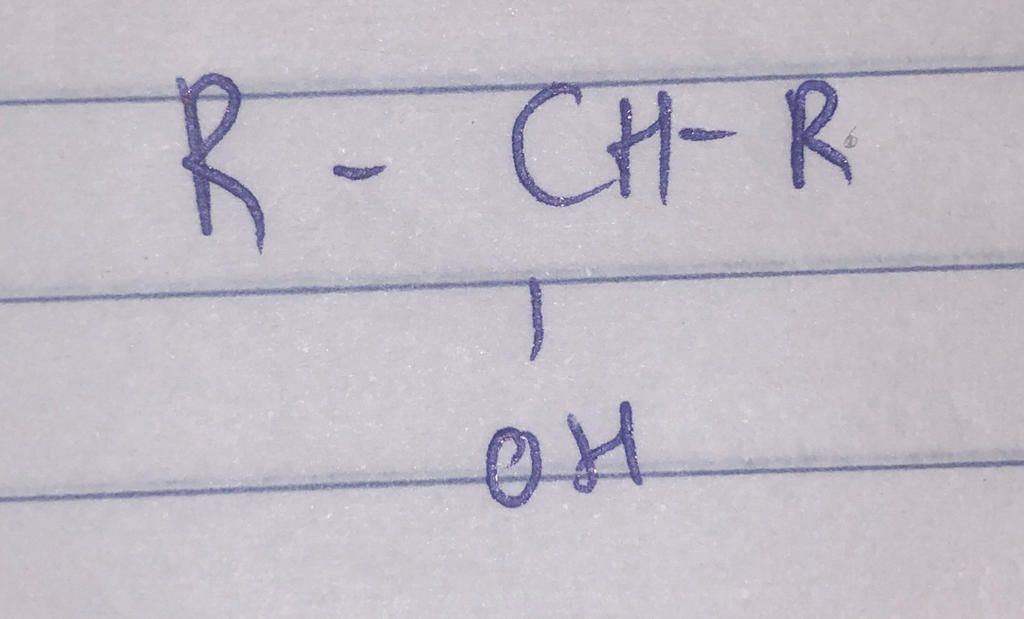 R - CH - R
|
OH